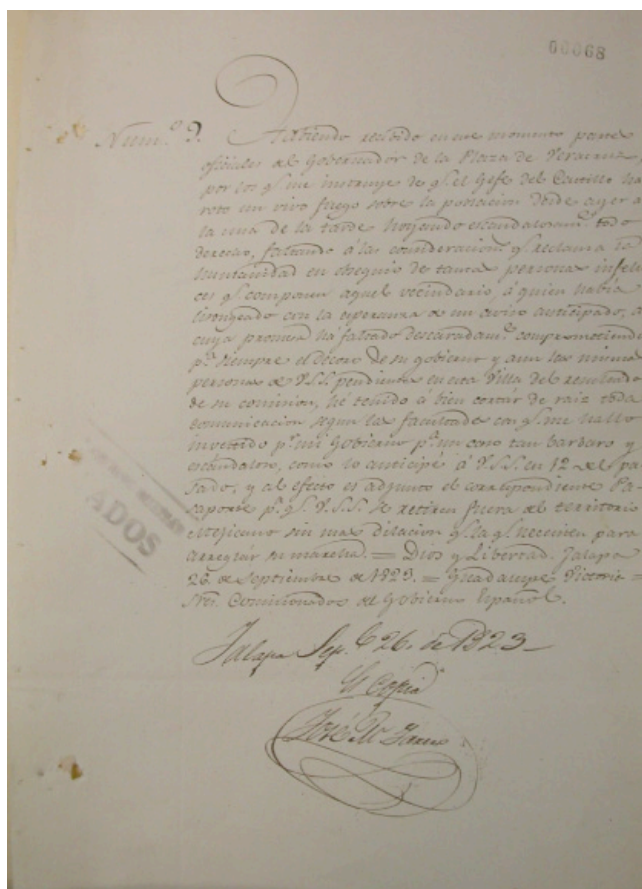 00068
Num.º 9. Habiendo recibido en este momento partes
oficiales del Gobernador de la Plaza de Veracruz,
por los q.e me instruye de q.e el Gefe del Castillo ha
roto un vivo fuego sobre la poblacion desde ayer a
la una de la tarde hoyando escandalosam.te todo
derecho, faltando á las consideracion.s q.e reclama la
humanidad en obsequio de tantas personas infeli
ces q.e componen aquel vecindario, á quien habia
lisongeado con la esperanza de un aviso anticipado, a
cuya promesa ha faltado descaradam.te comprometiendo
p.a siempre el decoro de su gobierno y aun las mismas
personas de V.S.S. pendientes en esta Villa del resultado
de su comision, he tenido á bien cortar de raiz toda
comunicacion segun las facultades con q.e me hallo
investido p.r mi Gobierno p.a un caso tan barbaro y
escandaloso, como lo anticipé á V.S.S. en 12 del pa-
sado, y al efecto es adjunto el correspondiente Pa-
saporte p.a q.e V.S.S. se retiren fuera del territorio
Mejicano sin mas dilacion q.e la q.e necesiten para
arreglar su marcha. = Dios y Libertad. Jalapa
26 de Septiembre de 1823. = Guadalupe Victoria =
Sres. Comisionados del Gobierno Español.
ADOS
Jalapa Sep.e 26. de 1823
Es Copia
José M.a